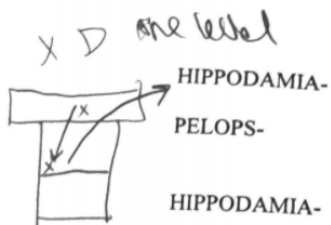 X D one level
HIPPODAMIA-
x
PELOPS-
x
HIPPODAMIA-